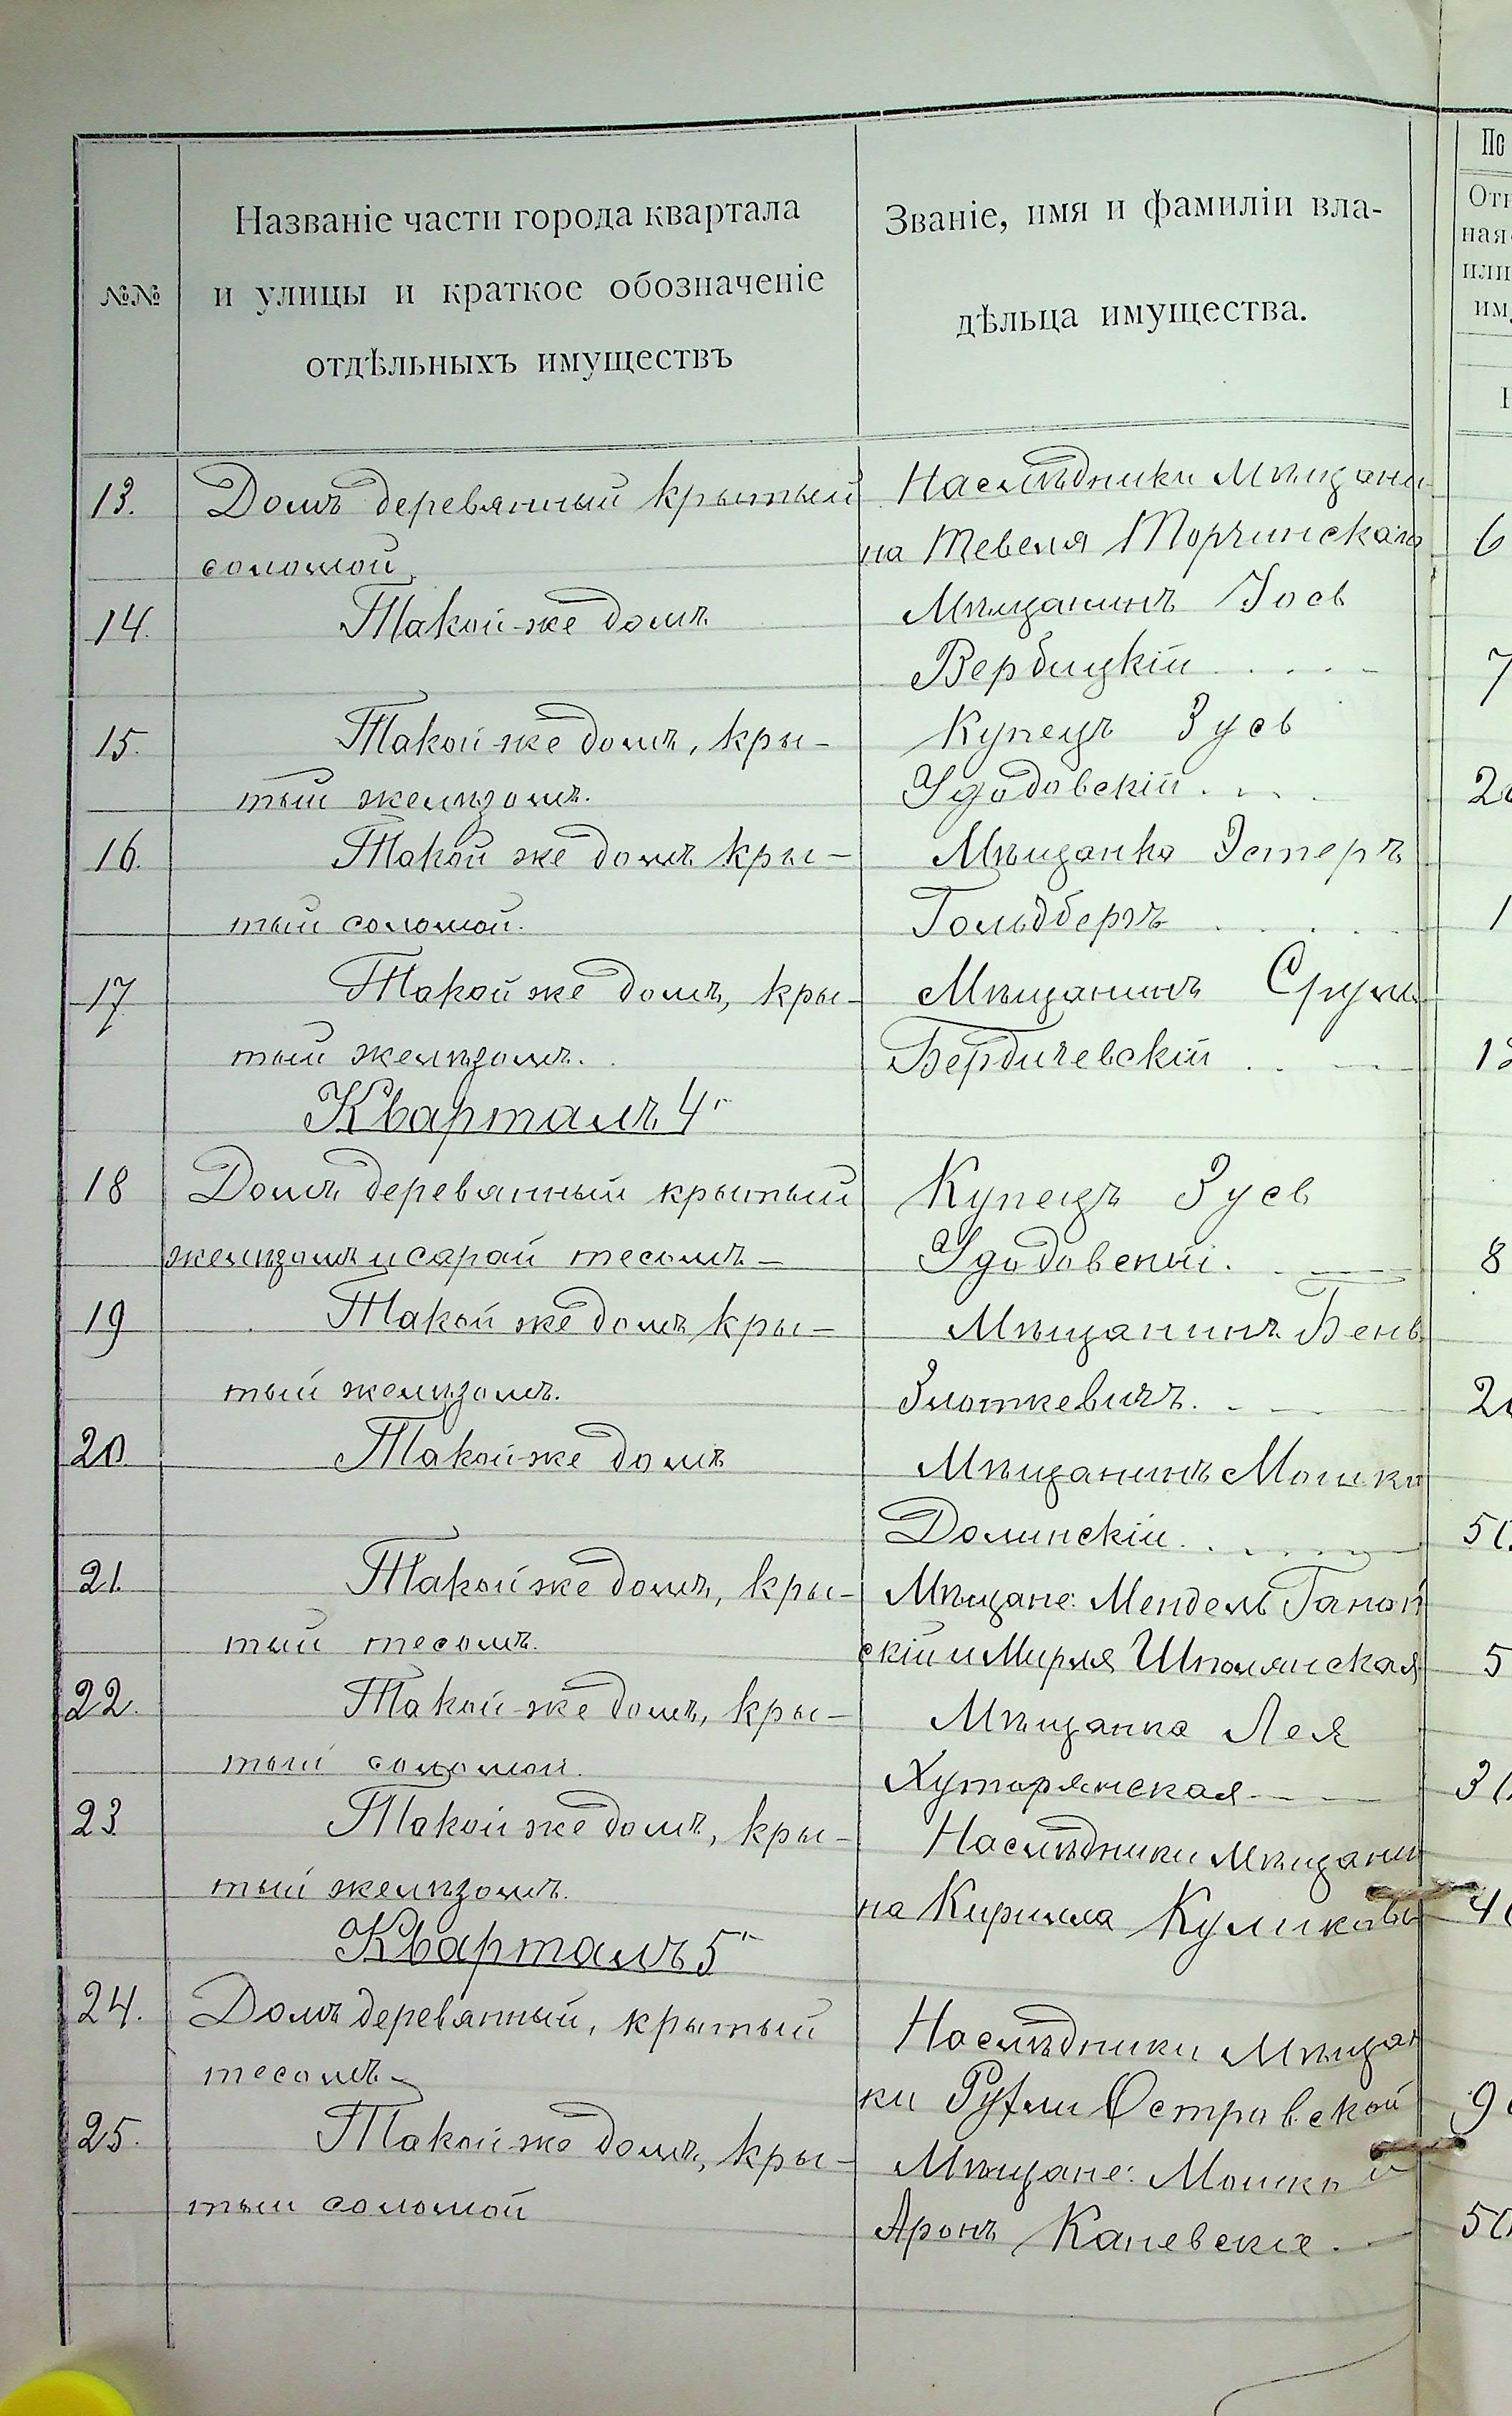 №№
Названіе части города квартала
и улицы и краткое обозначеніе
отдѣльныхъ имуществъ
Званіе, имя и фамиліи вла-
дѣльца имущества.
13. Домъ деревянный крытый
соломой
Наслѣдники Мѣщани-
на Тевеля Торчинскаго
6
14. Такой-же домъ
Мѣщанинъ Іось
Вербицкій
7
15. Такой-же домъ, кры-
тый желѣзомъ.
Купецъ Зусь
Удодовскій
16. Такой же домъ кры-
тый соломой.
Мѣщанка Эстеръ
Гольдбергъ
1
17 Такой же домъ, кры-
тый желѣзомъ.
Мѣщанинъ Сруль
Бердичевскій
Кварталъ 4"
18 Домъ деревянный крытый
желѣзомъ и сарай тесомъ
Купецъ Зусь
Удодовскій.
8
19 Такой же домъ кры-
тый желѣзомъ.
Мѣщанинъ Бень
Злоткевичъ.
20. Такой-же домъ
Мѣщанинъ Мошко
Долинскій
21. Такой же домъ, кры-
тый тесомъ.
Мѣщане: Мендель
скій и Мирля Шполянская
5
22. Такой-же домъ, кры-
тый соломой.
Мѣщанка Лея
Хуторянская
23. Такой же домъ, кры-
тый желѣзомъ.
Наслѣдники мѣщани
на Кирилла Куликовы
Кварталъ 5"
24. Домъ деревянный, крытый
тесомъ
Наслѣдники Мѣщан
ки Рухли Островской
25. Такой-же домъ, кры-
тый соломой
Мѣщане: Мошко и
Аронъ Каневскіе.